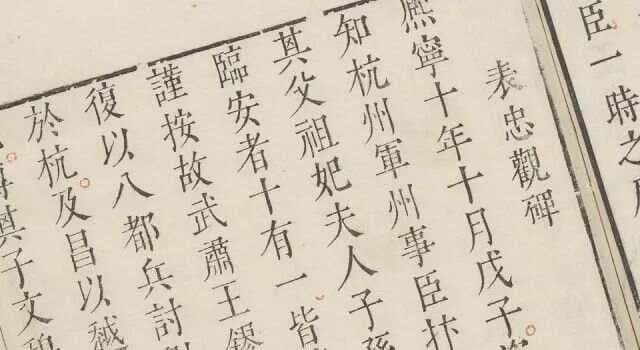 臣一時之
表忠觀碑
熙寧十年十月戊子
知杭州軍州事臣抃
其父祖妃夫人子孫
臨安者十有一皆
謹按故武肅王鏐
復以八都兵討
於杭及昌以越
其子文